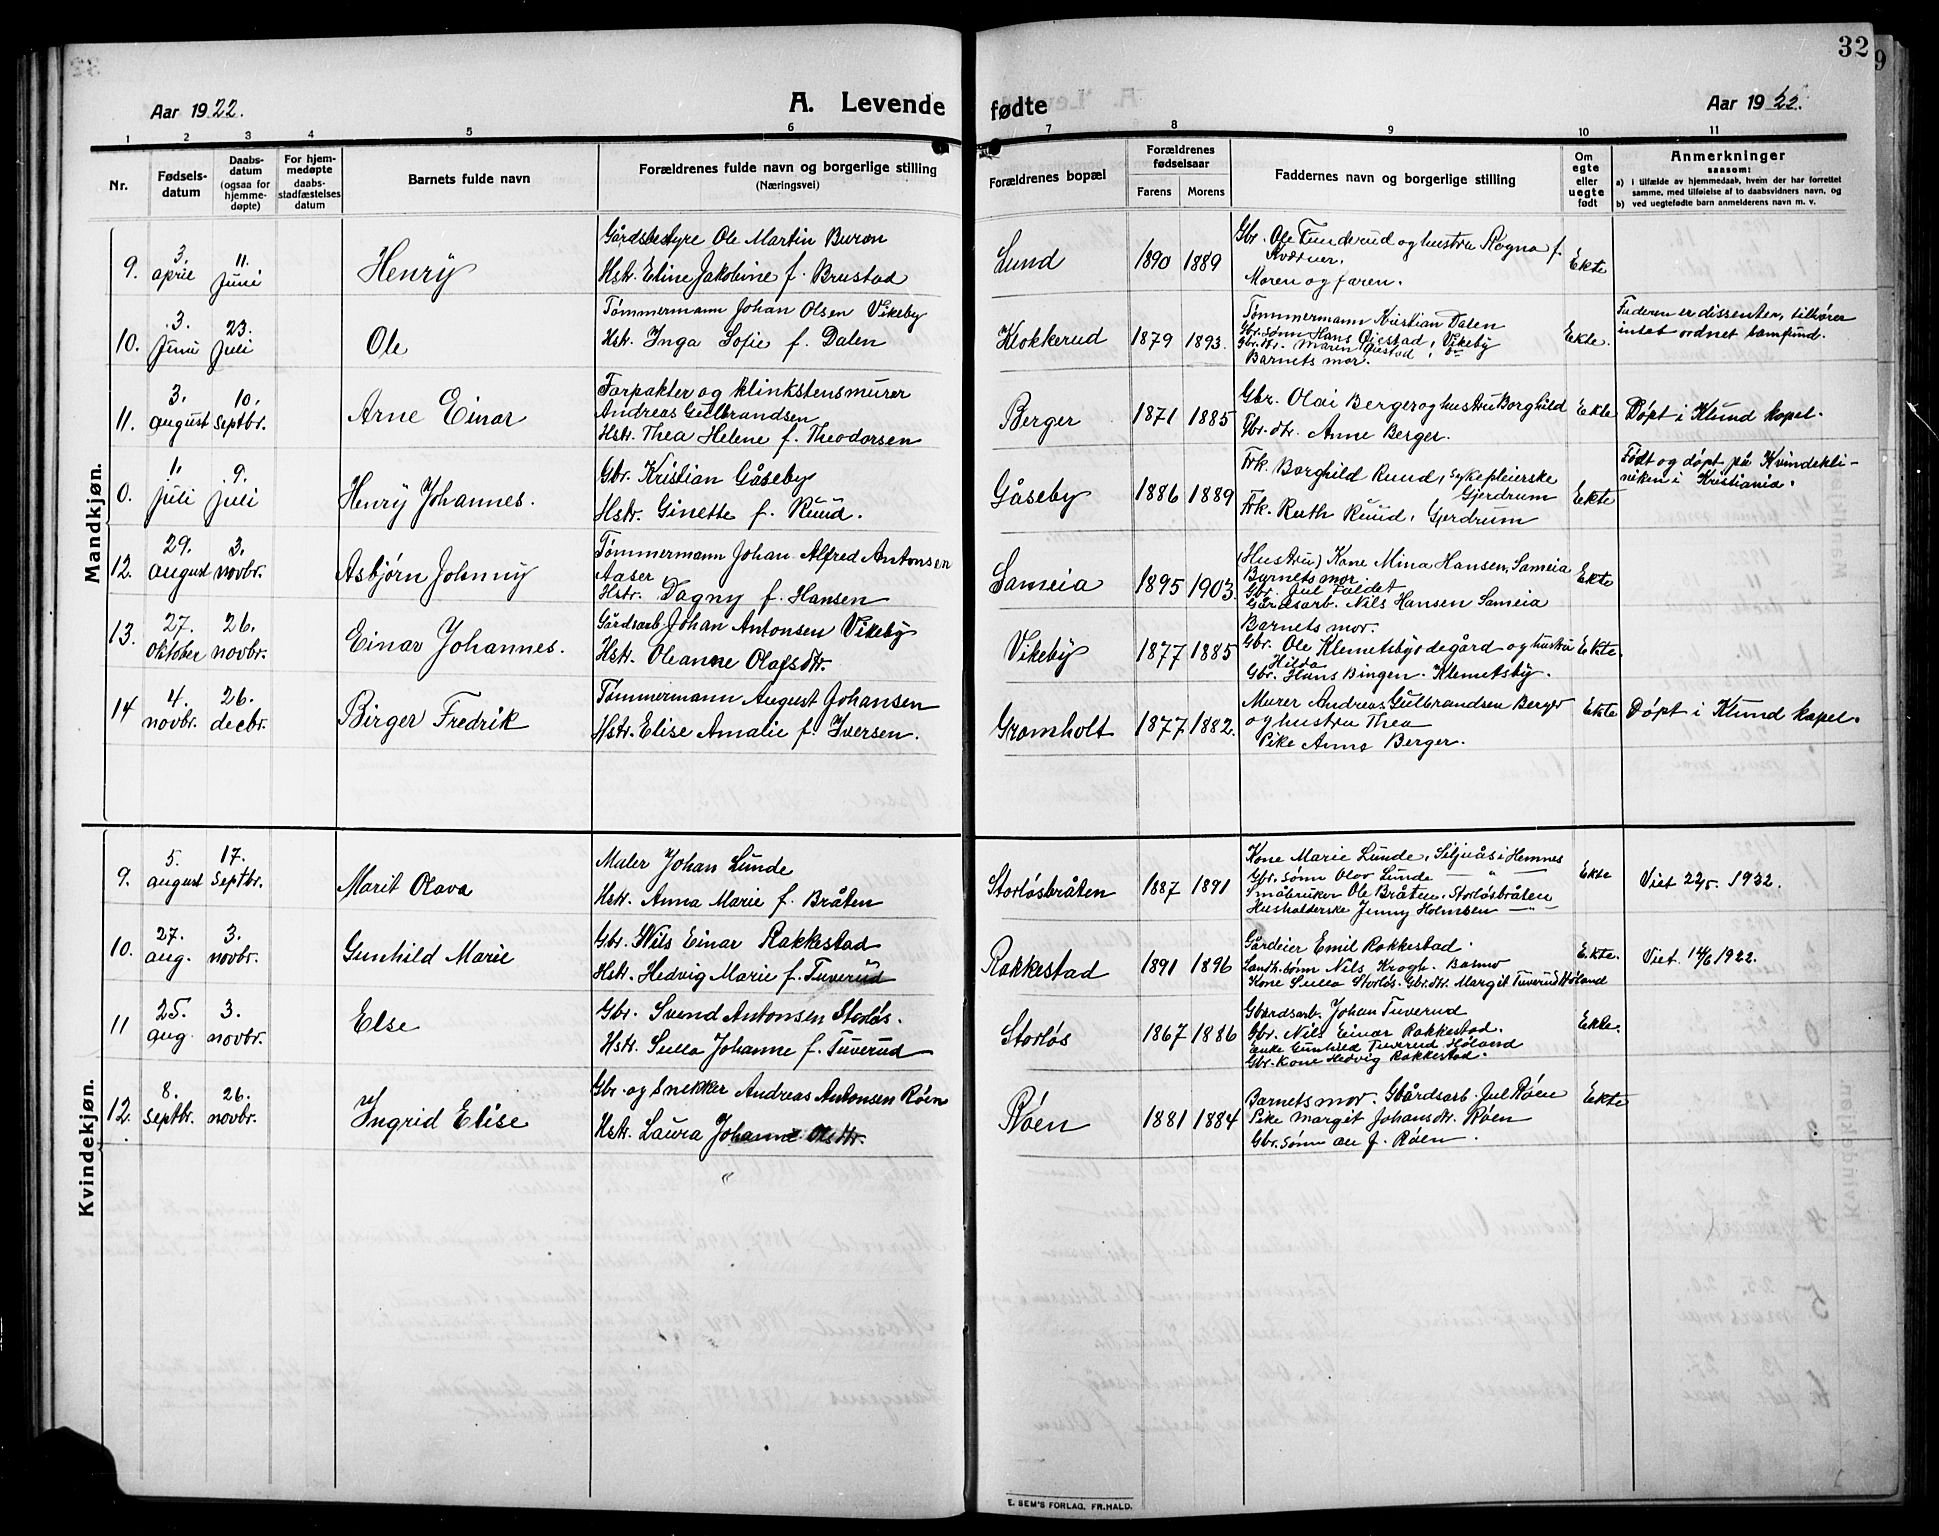 32
Aar 1922.
A. Levende fødte
Aar 1922.
1 2 3 4 5 6 7 8 9 10 11
Nr.
Fødsels-
datum
Daabs-
datum
(ogsaa for
hjemme-
døpte)
For hjem-
medøpte
daabs-
stadfæstelses
datum
Barnets fulde navn
Forældrenes fulde navn og borgerlige stilling
(Næringsvei)
Forældrenes bopæl
Forældrenes
fødselsaar
Farens Morens
Faddernes navn og borgerlige stilling
Om
egte
eller
uegte
født
Anmerkninger
saasom:
a) i tilfælde av hjemmedaab, hvem der har forrettet
samme, med tilføielse af to daabsvidners navn, og
b) ved uegtefødte barn anmelderens navn m. v.
Mandkjøn.
9. 3. april 11. juni Henry
Gårdsbestyre Ole Martin Buron
Hstr. Eline Jakobine f. Brustad
Lund 1890 1889
Gbr. Ole Tunderud og hustru Rogna f.
Kværner.
Moren og faren.
Ekte
10. 3. juni 23. juli Ole
Tømmermann Johan Olsen Vikeby
Hstr. Inga Sofie f. Dalen
Klokkerud 1879 1893.
Tømmermann Kristian Dalen
Gbr. sønn Hans Øiestad, Vikeby
Gbr. dtr. Maren Øiestad, do
Barnets mor.
Ekte.
Faderen er dissenter, tilhører
intet ordnet samfund.
11. 3. august 10. septbr. Arne Einar
Forpakter og klinkstensmurer
Andreas Gulbrandsen
Hstr. Thea Helene f. Theodorsen
Berger 1871 1885
Gbr. Olai Berger og hustru Borghild
Gbr. dtr. Anne Berger.
Ekte
Døpt i Klund kapel.
0. 1. juli 9. juli Henry Johannes.
Gbr. Kristian Gåseby
Hstr. Ginette f. Ruud.
Gåseby 1886 1889
Frk. Borghild Ruud, Sykepleierske
Gjerdrum
Frk. Ruth Ruud, Gjerdrum
Ekte
Født og døpt på Kvindekli-
niken i Kristiania.
12. 29. august 3. novbr. Asbjørn Johnny
Tømmermann Johan Alfred Antonsen
Aaser
Hstr. Dagny f. Hansen
Sameia 1895 1903
(Hustru) Kone Mina Hansen, Sameia
Barnets mor.
Gbr. Jul Foldet
Gårdsarb. Nils Hansen Sameia
Ekte
13. 27. oktober 26. novbr. Einar Johannes.
Gårdsarb. Johan Antonsen Vikeby
Hstr. Oleanne Olafsdtr.
Vikeby 1877 1885
Barnets mor.
Gbr. Ole Klemetsby ødegård og hustru
Hilda
Gbr. Hans Bingen. Klemetsby.
Ekte.
14 4. novbr. 26. decbr. Birger Fredrik
Tømmermann August Johansen
Hstr. Elise Amalie f. Iversen.
Gromholt 1877 1882.
Murer Andreas Gulbrandsen Berger
og hustru Thea
Pike Anne Berger.
Ekte
Døpt i Klund kapel.
Kvindekjøn.
9. 5. august 17. septbr. Marit Olava
Maler Johan Lunde
Hstr. Anna Marie f. Bråten
Storløsbråten 1887 1891
Kone Marie Lunde, Siljuås i Hemnes
Gbr. sønn Olav Lunde — " —
Småbruker Ole Bråten, Storløsbråten
Husholderske Jenny Holmsen — " —
Ekte
Viet 22/5. 1932.
10. 27. aug. 3. novbr. Gunhild Marie
Gbr. Nils Einar Rakkestad
Hstr. Hedvig Marie f. Tuverud
Rakkestad 1891 1896
Gårdeier Emil Rakkestad.
Landh. sønn Nils Krogh. Basmo
Kone Sulla Storløs. Gbr. dtr. Margit Tuverud Høland
Ekte.
Viet 14/6 1922.
11 25. aug. 3. novbr. Else
Gbr. Svend Antonsen Storløs.
Hstr. Sulla Johanne f. Tuverud
Storløs 1867 1886
Gbårdsarb. Johan Tuverud
Gbr. Nils Einar Rakkestad.
Enke Gunhild Tuverud. Høland
Gbr. kone Hedvig Rakkestad.
Ekte.
12. 8. septbr. 26. novbr. Ingrid Elise
Gbr. og snekker Andreas Antonsen Røen
Hstr. Laura Johanne Olsdtr.
Røen 1881 1884
Barnets mor. Gbårdsarb. Jul Røen
Pike Margit Johansdtr. Røen
Gbr. sønn J. Røen.
Ekte
E. SEM'S FORLAG. FR.HALD.